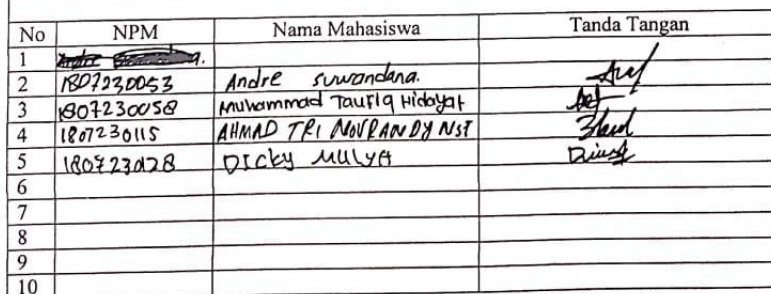 No NPM Nama Mahasiswa Tanda Tangan
1
2 1807230053 Andre suwandana.
3 1807230058 Muhammad Taufiq Hidayat
4 1807230115 AHMAD TRI NOVRANDY NST
5 DICKY MULYA
6
7
8
9
10